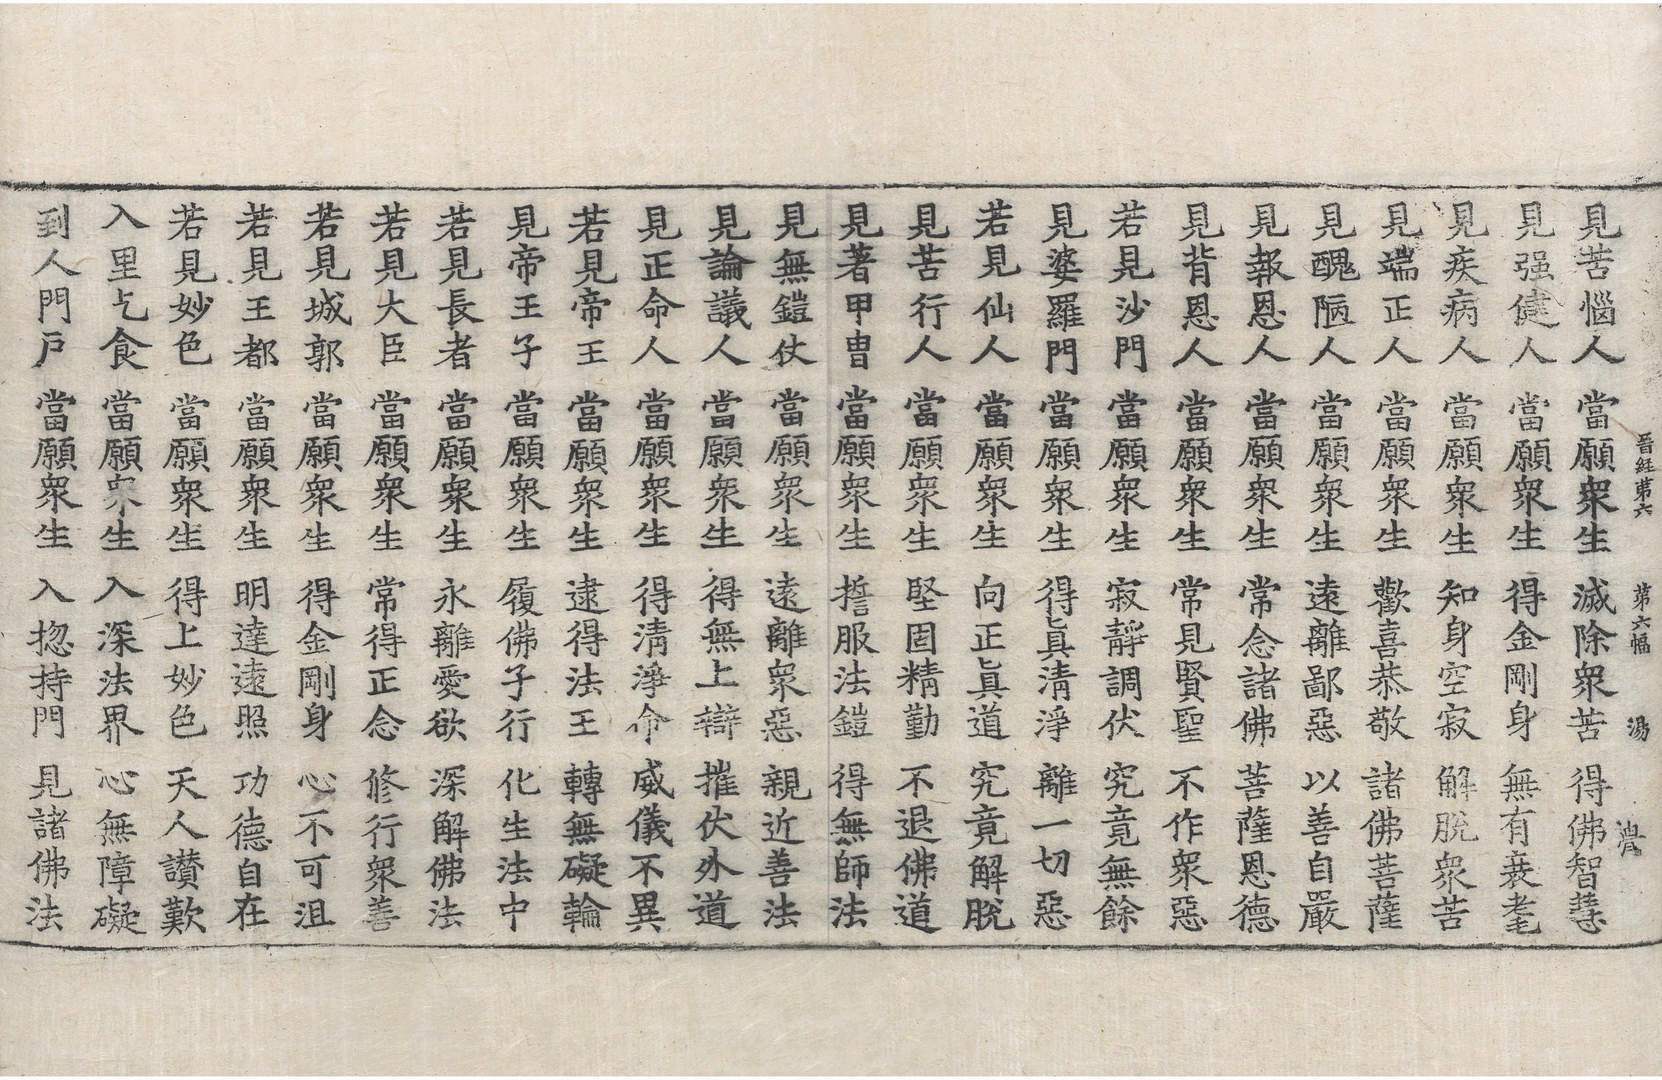 晉經第六 第六幅 湯
見苦惱人 當願衆生 滅除衆苦 得佛智慧
見强健人 當願衆生 得金剛身 無有衰耄
見疾病人 當願衆生 知身空寂 解脫衆苦
見端正人 當願衆生 歡喜恭敬 諸佛菩薩
見醜陋人 當願衆生 遠離鄙惡 以善自嚴
見報恩人 當願衆生 常念諸佛 菩薩恩德
見背恩人 當願衆生 常見賢聖 不作衆惡
若見沙門 當願衆生 寂靜調伏 究竟無餘
見婆羅門 當願衆生 得眞清淨 離一切惡
若見仙人 當願衆生 向正眞道 究竟解脫
見苦行人 當願衆生 堅固精勤 不退佛道
見著甲冑 當願衆生 誓服法鎧 得無師法
見無鎧仗 當願衆生 遠離衆惡 親近善法
見論議人 當願衆生 得無上辯 摧伏外道
見正命人 當願衆生 得清淨命 威儀不異
若見帝王 當願衆生 逮得法王 轉無礙輪
見帝王子 當願衆生 履佛子行 化生法中
若見長者 當願衆生 永離愛欲 深解佛法
若見大臣 當願衆生 常得正念 修行衆善
若見城郭 當願衆生 得金剛身 心不可沮
若見王都 當願衆生 明達遠照 功德自在
若見妙色 當願衆生 得上妙色 天人讃歎
入里乞食 當願衆生 入深法界 心無障礙
到人門戶 當願衆生 入惣持門 見諸佛法